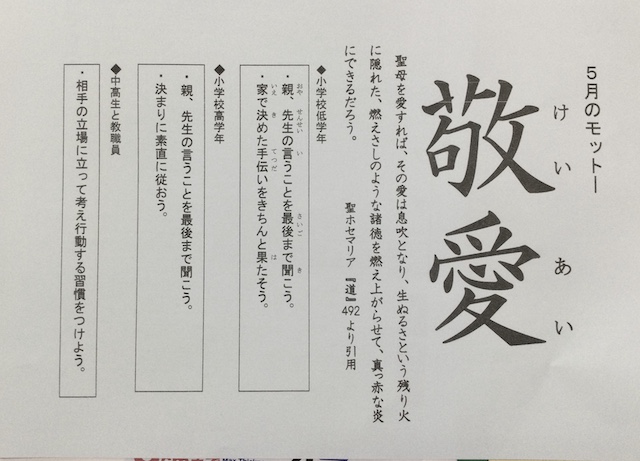 5月のモットー
けい あい
敬愛
聖母を愛すれば、その愛は息吹となり、生ぬるさという残り火
に隠れた、燃えさしのような諸徳を燃え上がらせて、真っ赤な炎
にできるだろう。
聖ホセマリア『道』492より引用
◆小学校低学年
・親、先生の言うことを最後まで聞こう。
おや せんせい い さいご き
・家で決めた手伝いをきちんと果たそう。
いえ き てつだ は
◆小学校高学年
・親、先生の言うことを最後まで聞こう。
・決まりに素直に従おう。
◆中高生と教職員
・相手の立場に立って考え行動する習慣をつけよう。